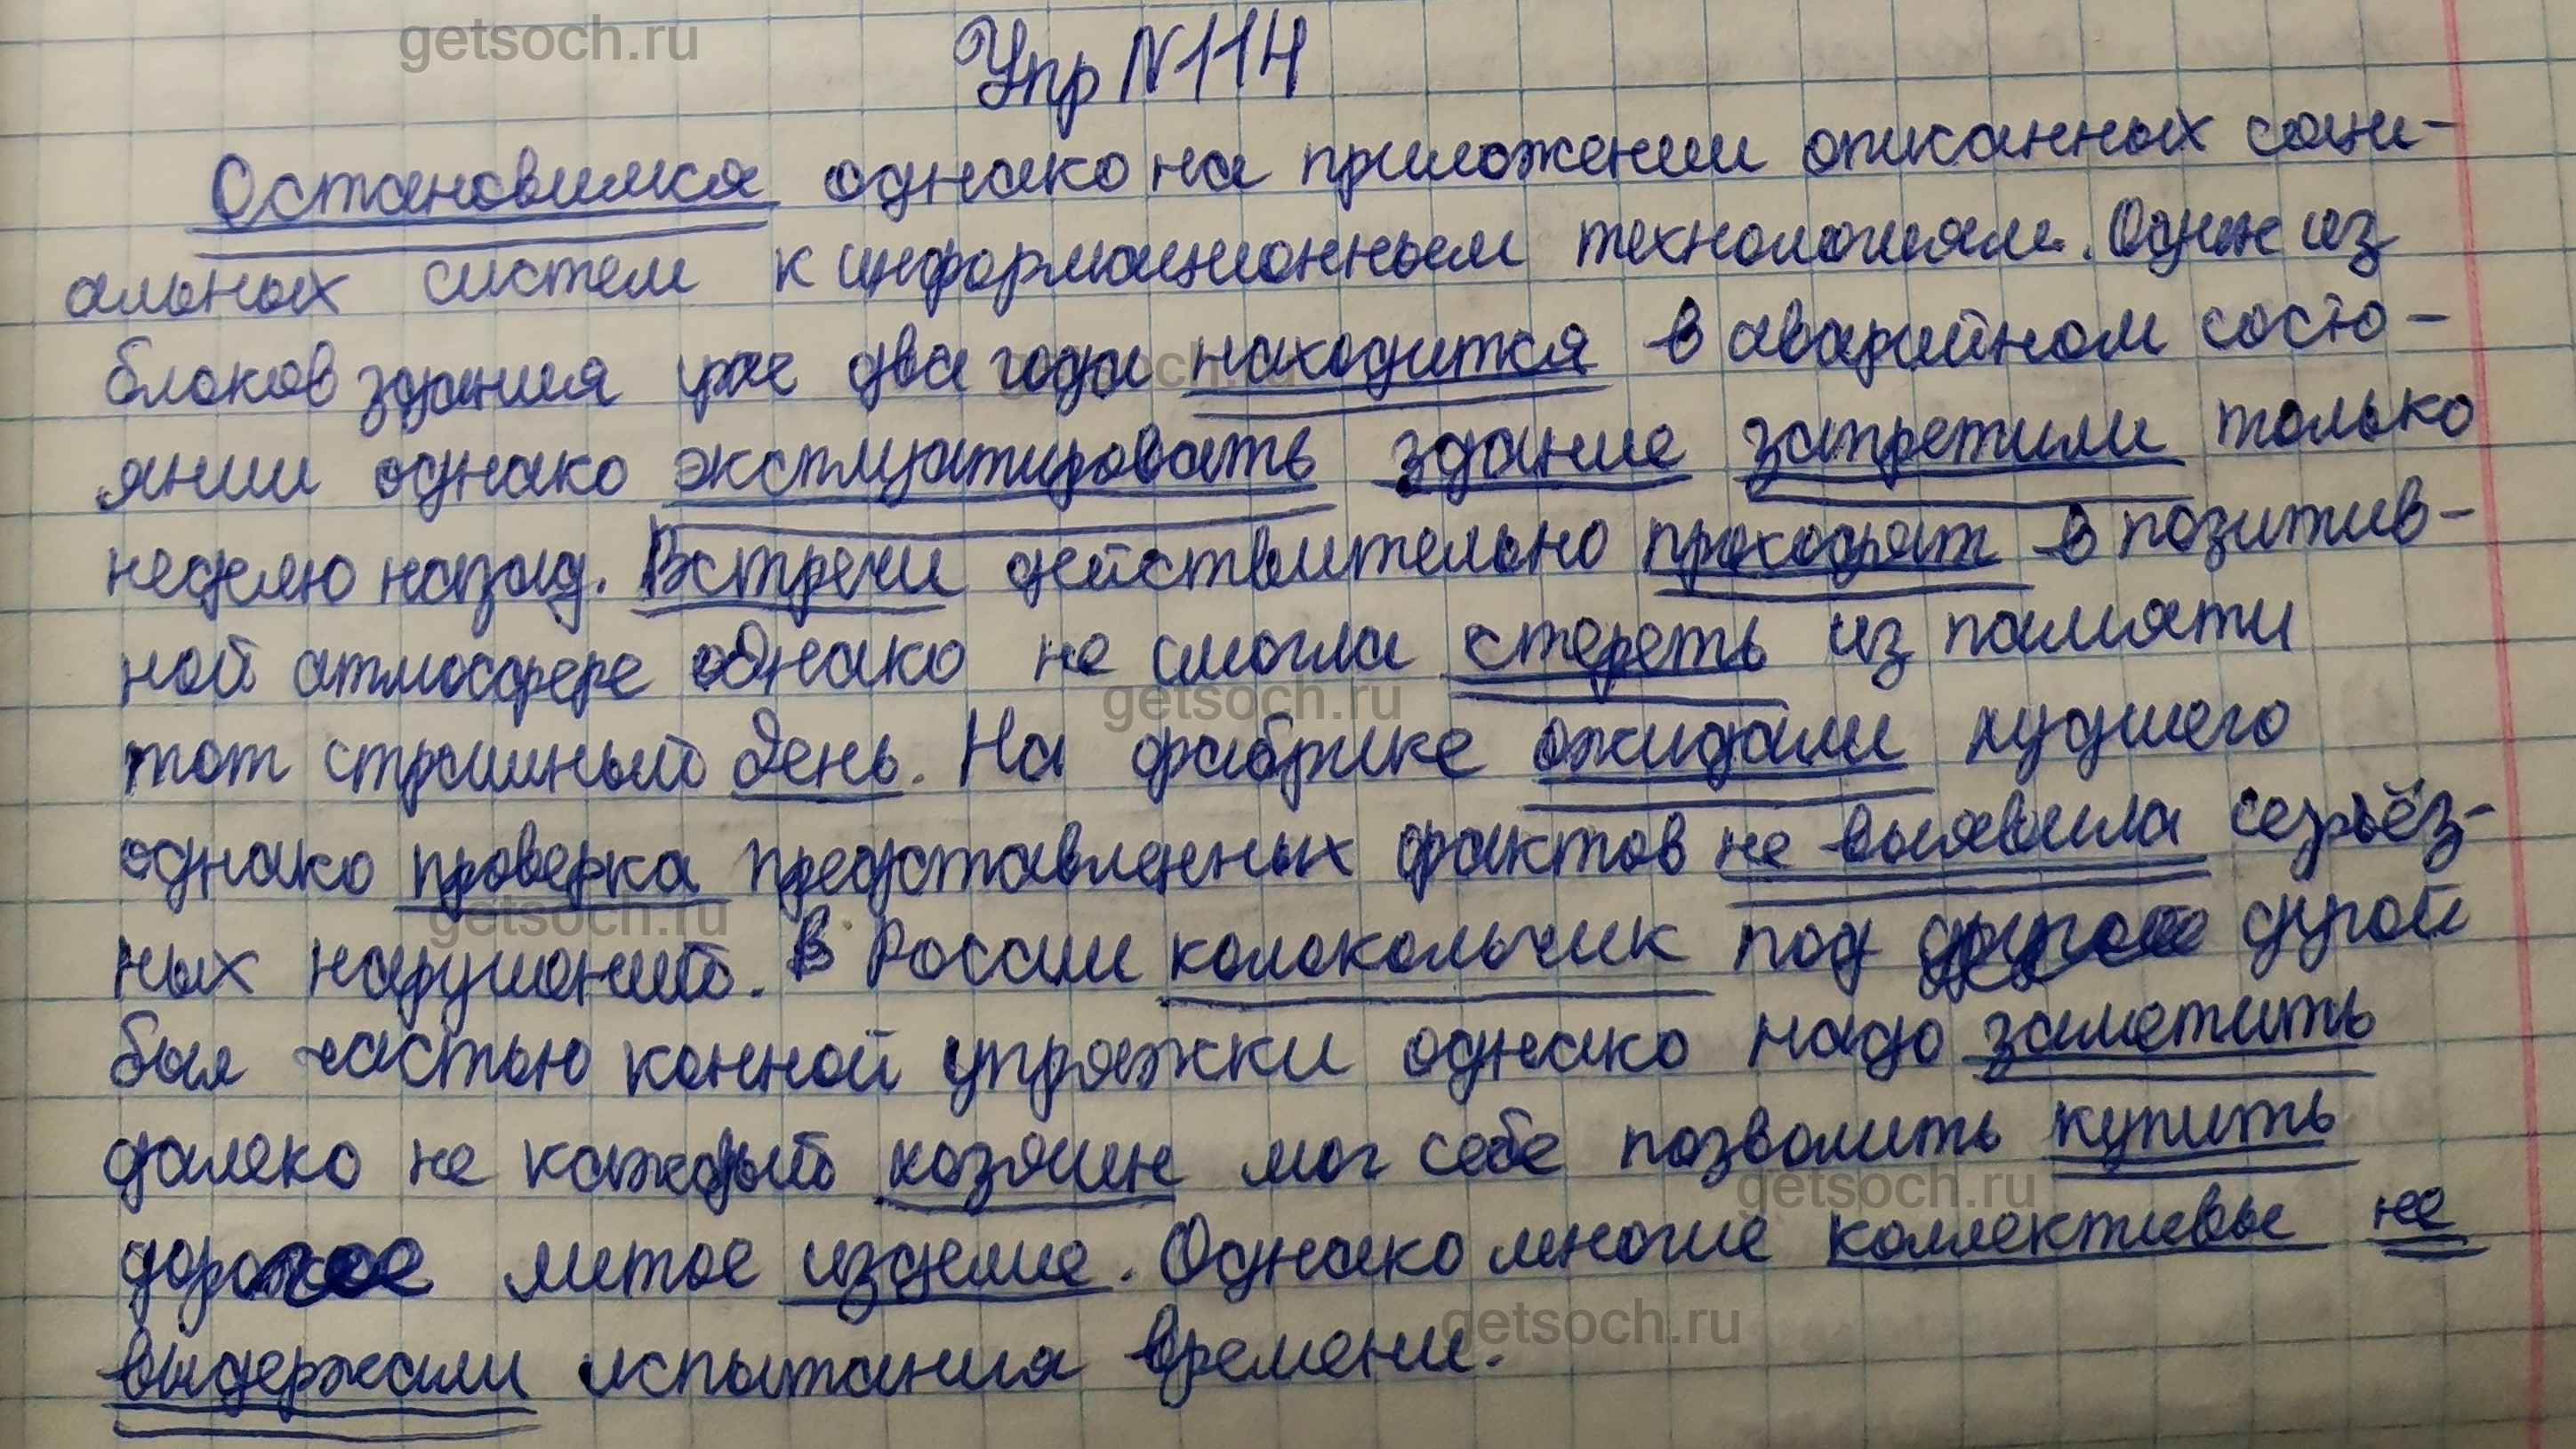 getsoch.ru
Упр N114
Остановимся однако на приложении описанных соци-
альных систем к информационным технологиям. Один из
блоков здания уже два года находится в аварийном состо-
янии однако эксплуатировать здание запретили только
неделю назад. Встречи действительно проходят в позитив-
ной атмосфере однако не смогли стереть из памяти
getsoch.ru
тот страшный день. На фабрике ожидали худшего
однако проверка представленных фактов не выявила серьёз-
getsoch.ru
ных нарушений. В России колокольчик под дугой
был частью конной упряжки однако надо заметить
далеко не каждый хозяин мог себе позволить купить
getsoch.ru
дорогое литое изделие. Однако многие коллективы не
getsoch.ru
выдержали испытания времени.